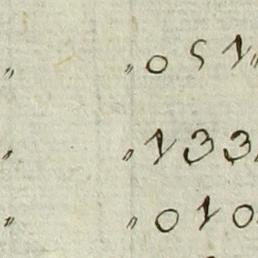 〃 〃051〃
〃 〃133
〃 〃010